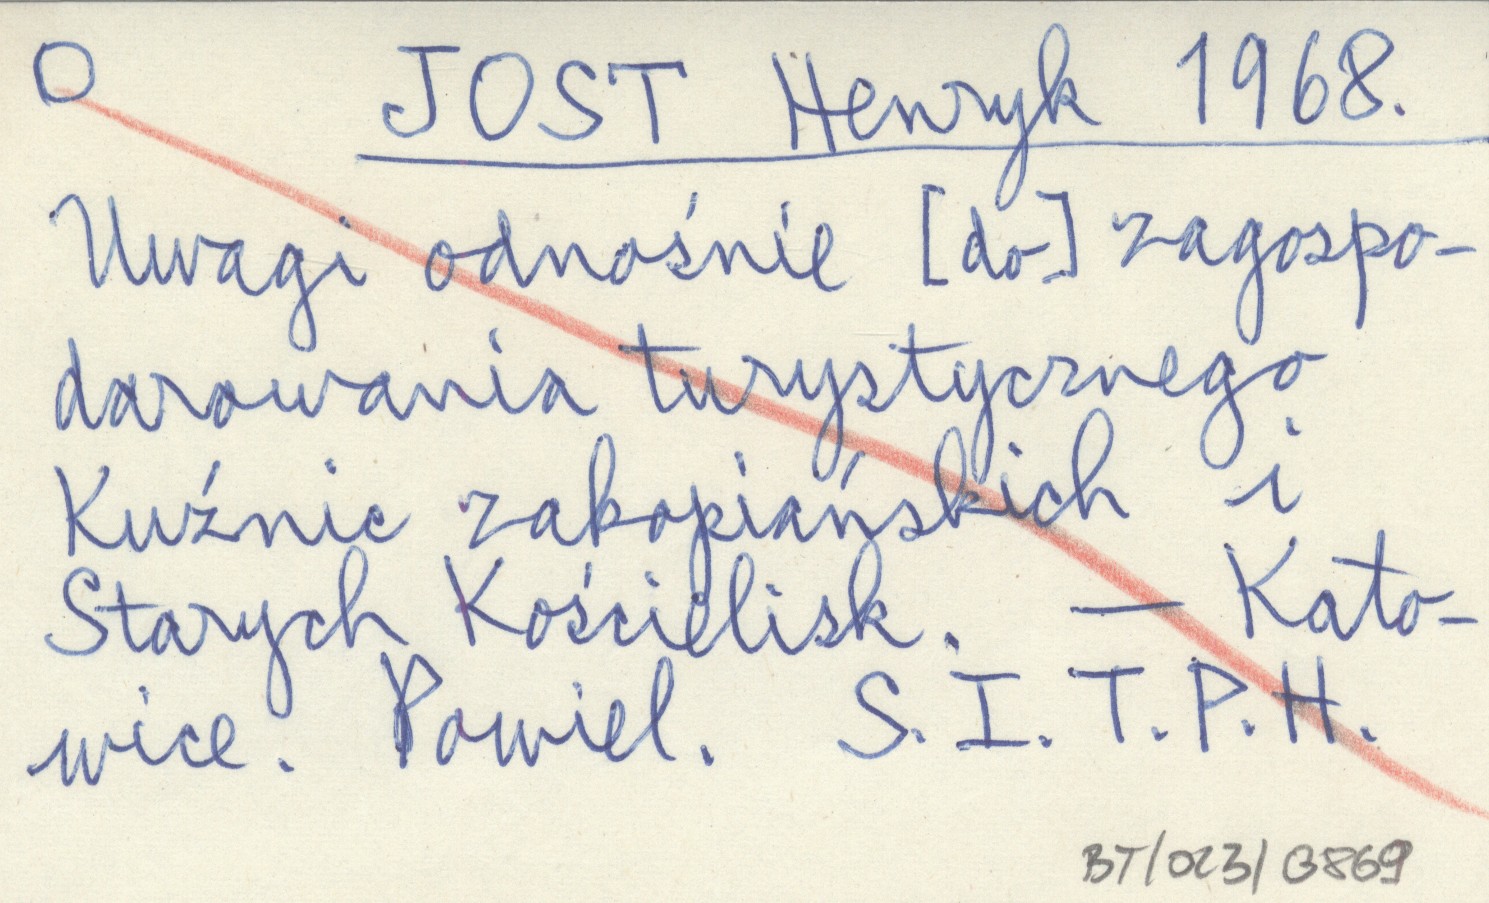 O JOST Henryk 1968.
Uwagi odnośnie [do] zagospo-
darowania turystycznego
Kuźnic zakopiańskich i
Starych Kościelisk. — Kato-
wice. Powiel. S.I.T.P.H.
BT/023/G869